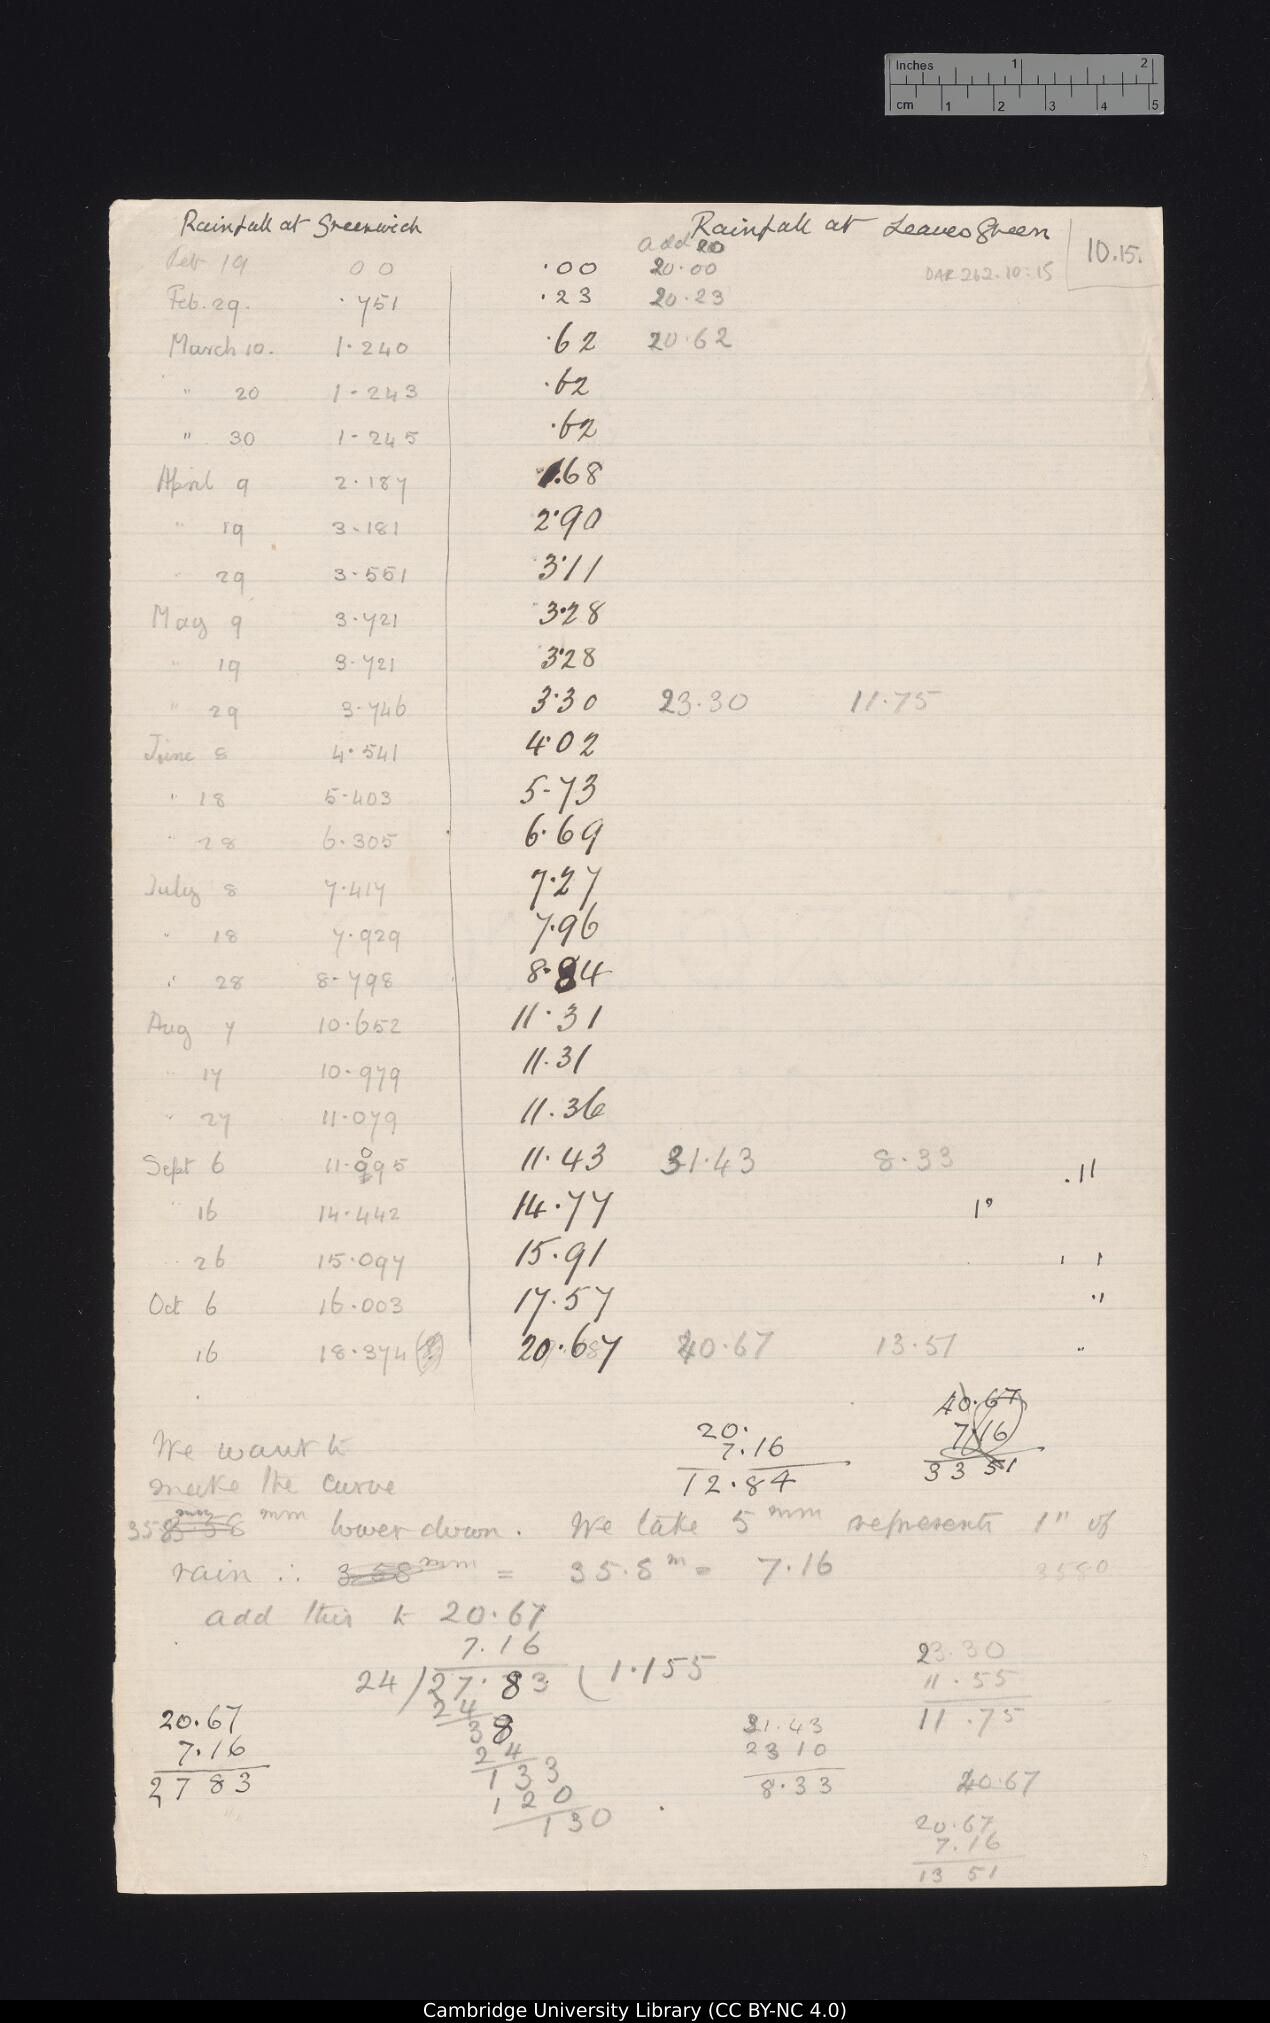 Inches 1 2
cm 1 2 3 4 5
Rainfall at Greenwich Rainfall at Leaves Green 10.15.
add 20
Feb 19 00 .00 20.00 DAR 262.10:15
Feb. 29. .751 .23 20.23
March 10. 1.240 .62 20.62
" 20 1-243 .62
" 30 1-245 .62
April 9 2.187 1.68
" 19 3-181 2.90
" 29 3-551 3.11
May 9 3-721 3.28
" 19 3-721 3.28
" 29 3-746 3.30 23.30 11.75
June 8 4.541 4.02
" 18 5-403 5-73
" 28 6.305 6.69
July 8 7.417 7.27
" 18 7.929 7.96
" 28 8-798 8.84
Aug 7 10.652 11.31
" 17 10-979 11.31
" 27 11.079 11.36
Sept 6 11.095 11.43 31.43 8.33 .11
" 16 14.442 14.77 1°
" 26 15.097 15.91 ' 1
Oct 6 16.003 17.57 .1
16 18.374 20.67 40.67 13.51 "
We want to
make the curve
20.
7.16
12.84
40.67
7.16
33 51
358 mm lower down. We take 5 mm represents 1" of
rain ∴ 358 mm = 35.8 m = 7.16 3580
add this to 20.67
7.16
24 / 27.83 ( 1.155
24
38
24
133
120
130
20.67
7.16
27 83
31.43
23 10
8.33
23.30
11.55
11.75
40.67
20.67
7.16
13 51
Cambridge University Library (CC BY-NC 4.0)